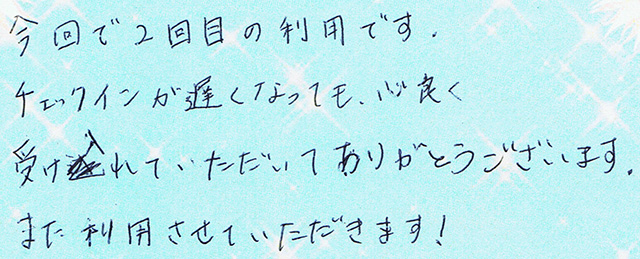 今回で2回目の利用です.
チェックインが遅くなっても、心良く
受け入れていただいてありがとうございます.
また利用させていただきます!